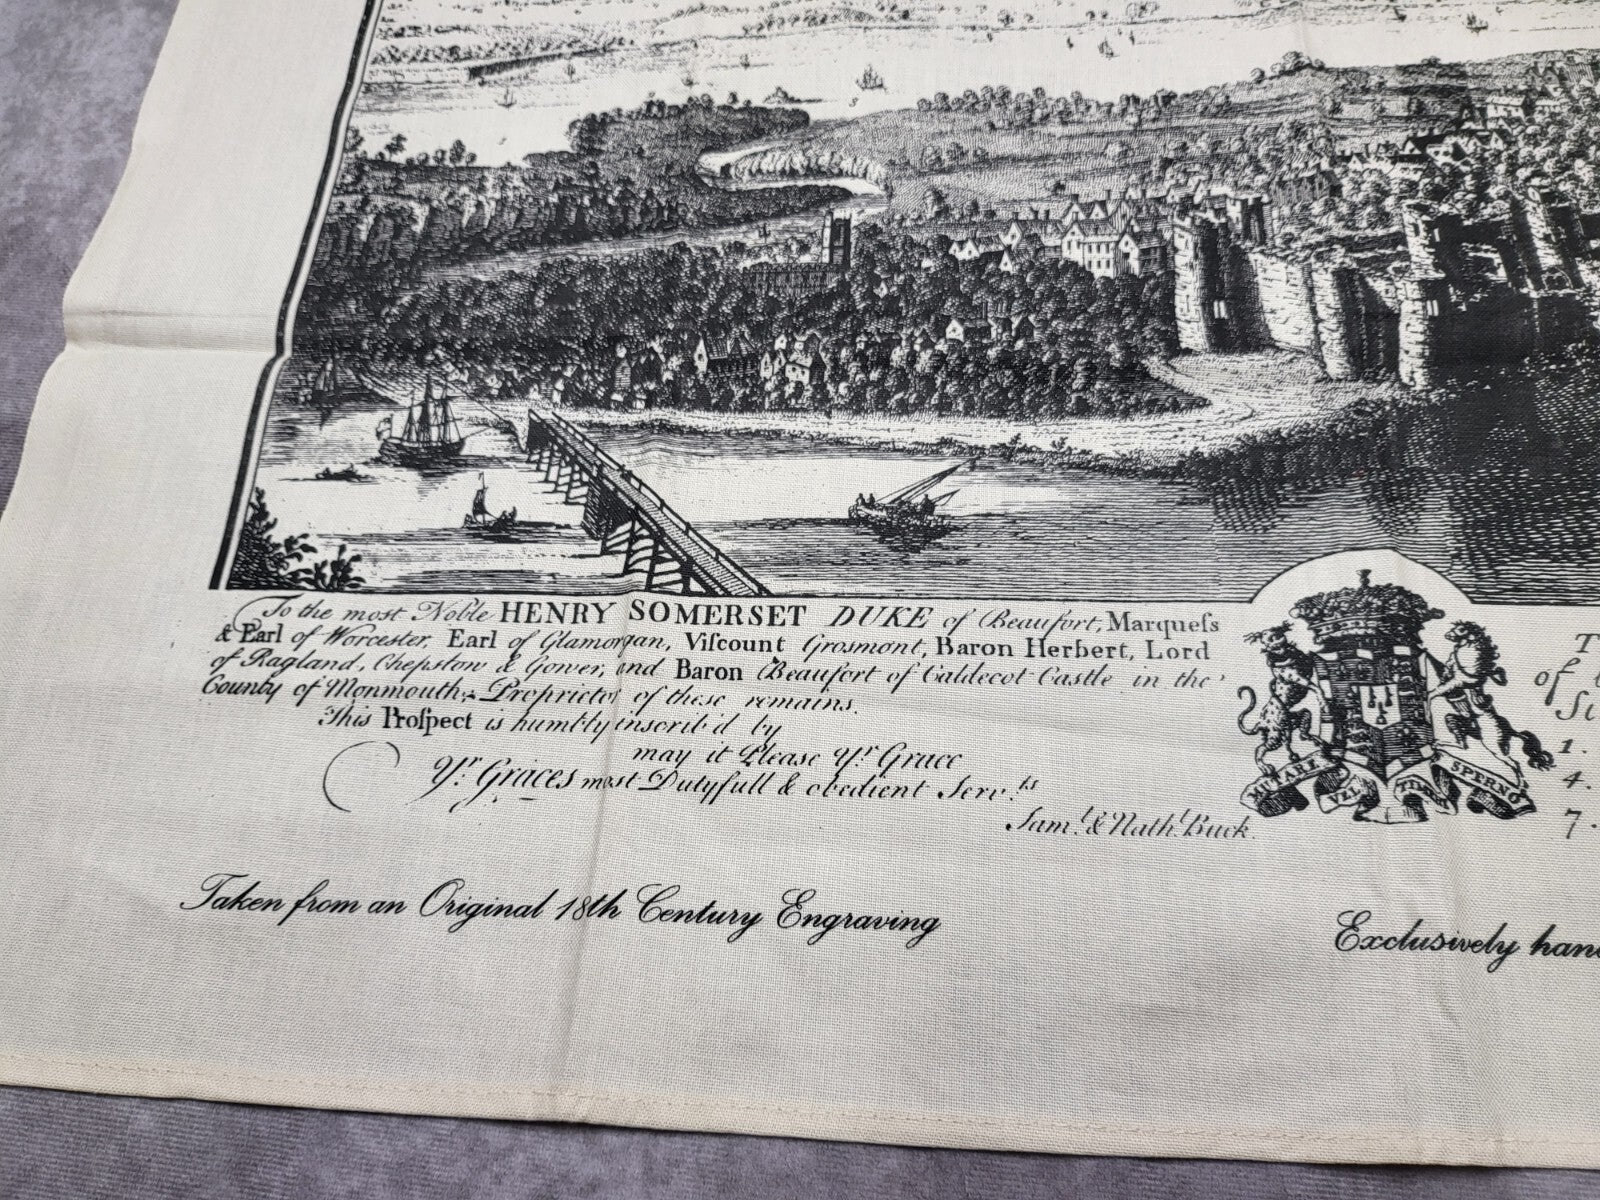 To the most Noble HENRY SOMERSET DUKE of Beaufort, Marqueſs
& Earl of Worcester, Earl of Glamorgan, Viſcount Grosmont, Baron Herbert, Lord
of Ragland, Chepstow & Gower, and Baron Beaufort of Caldecot Castle in the
County of Monmouth; Proprietor of these remains.
This Proſpect is humbly inscrib'd by
may it Please Yr. Grace
Yr. Graces most Dutyfull & obedient Serv.ts
Sam.l & Nath.l Buck.
MUTARE VEL TIMERE SPERNO
T
of
Si
1.
4.
7.
Taken from an Original 18th Century Engraving
Exclusively han